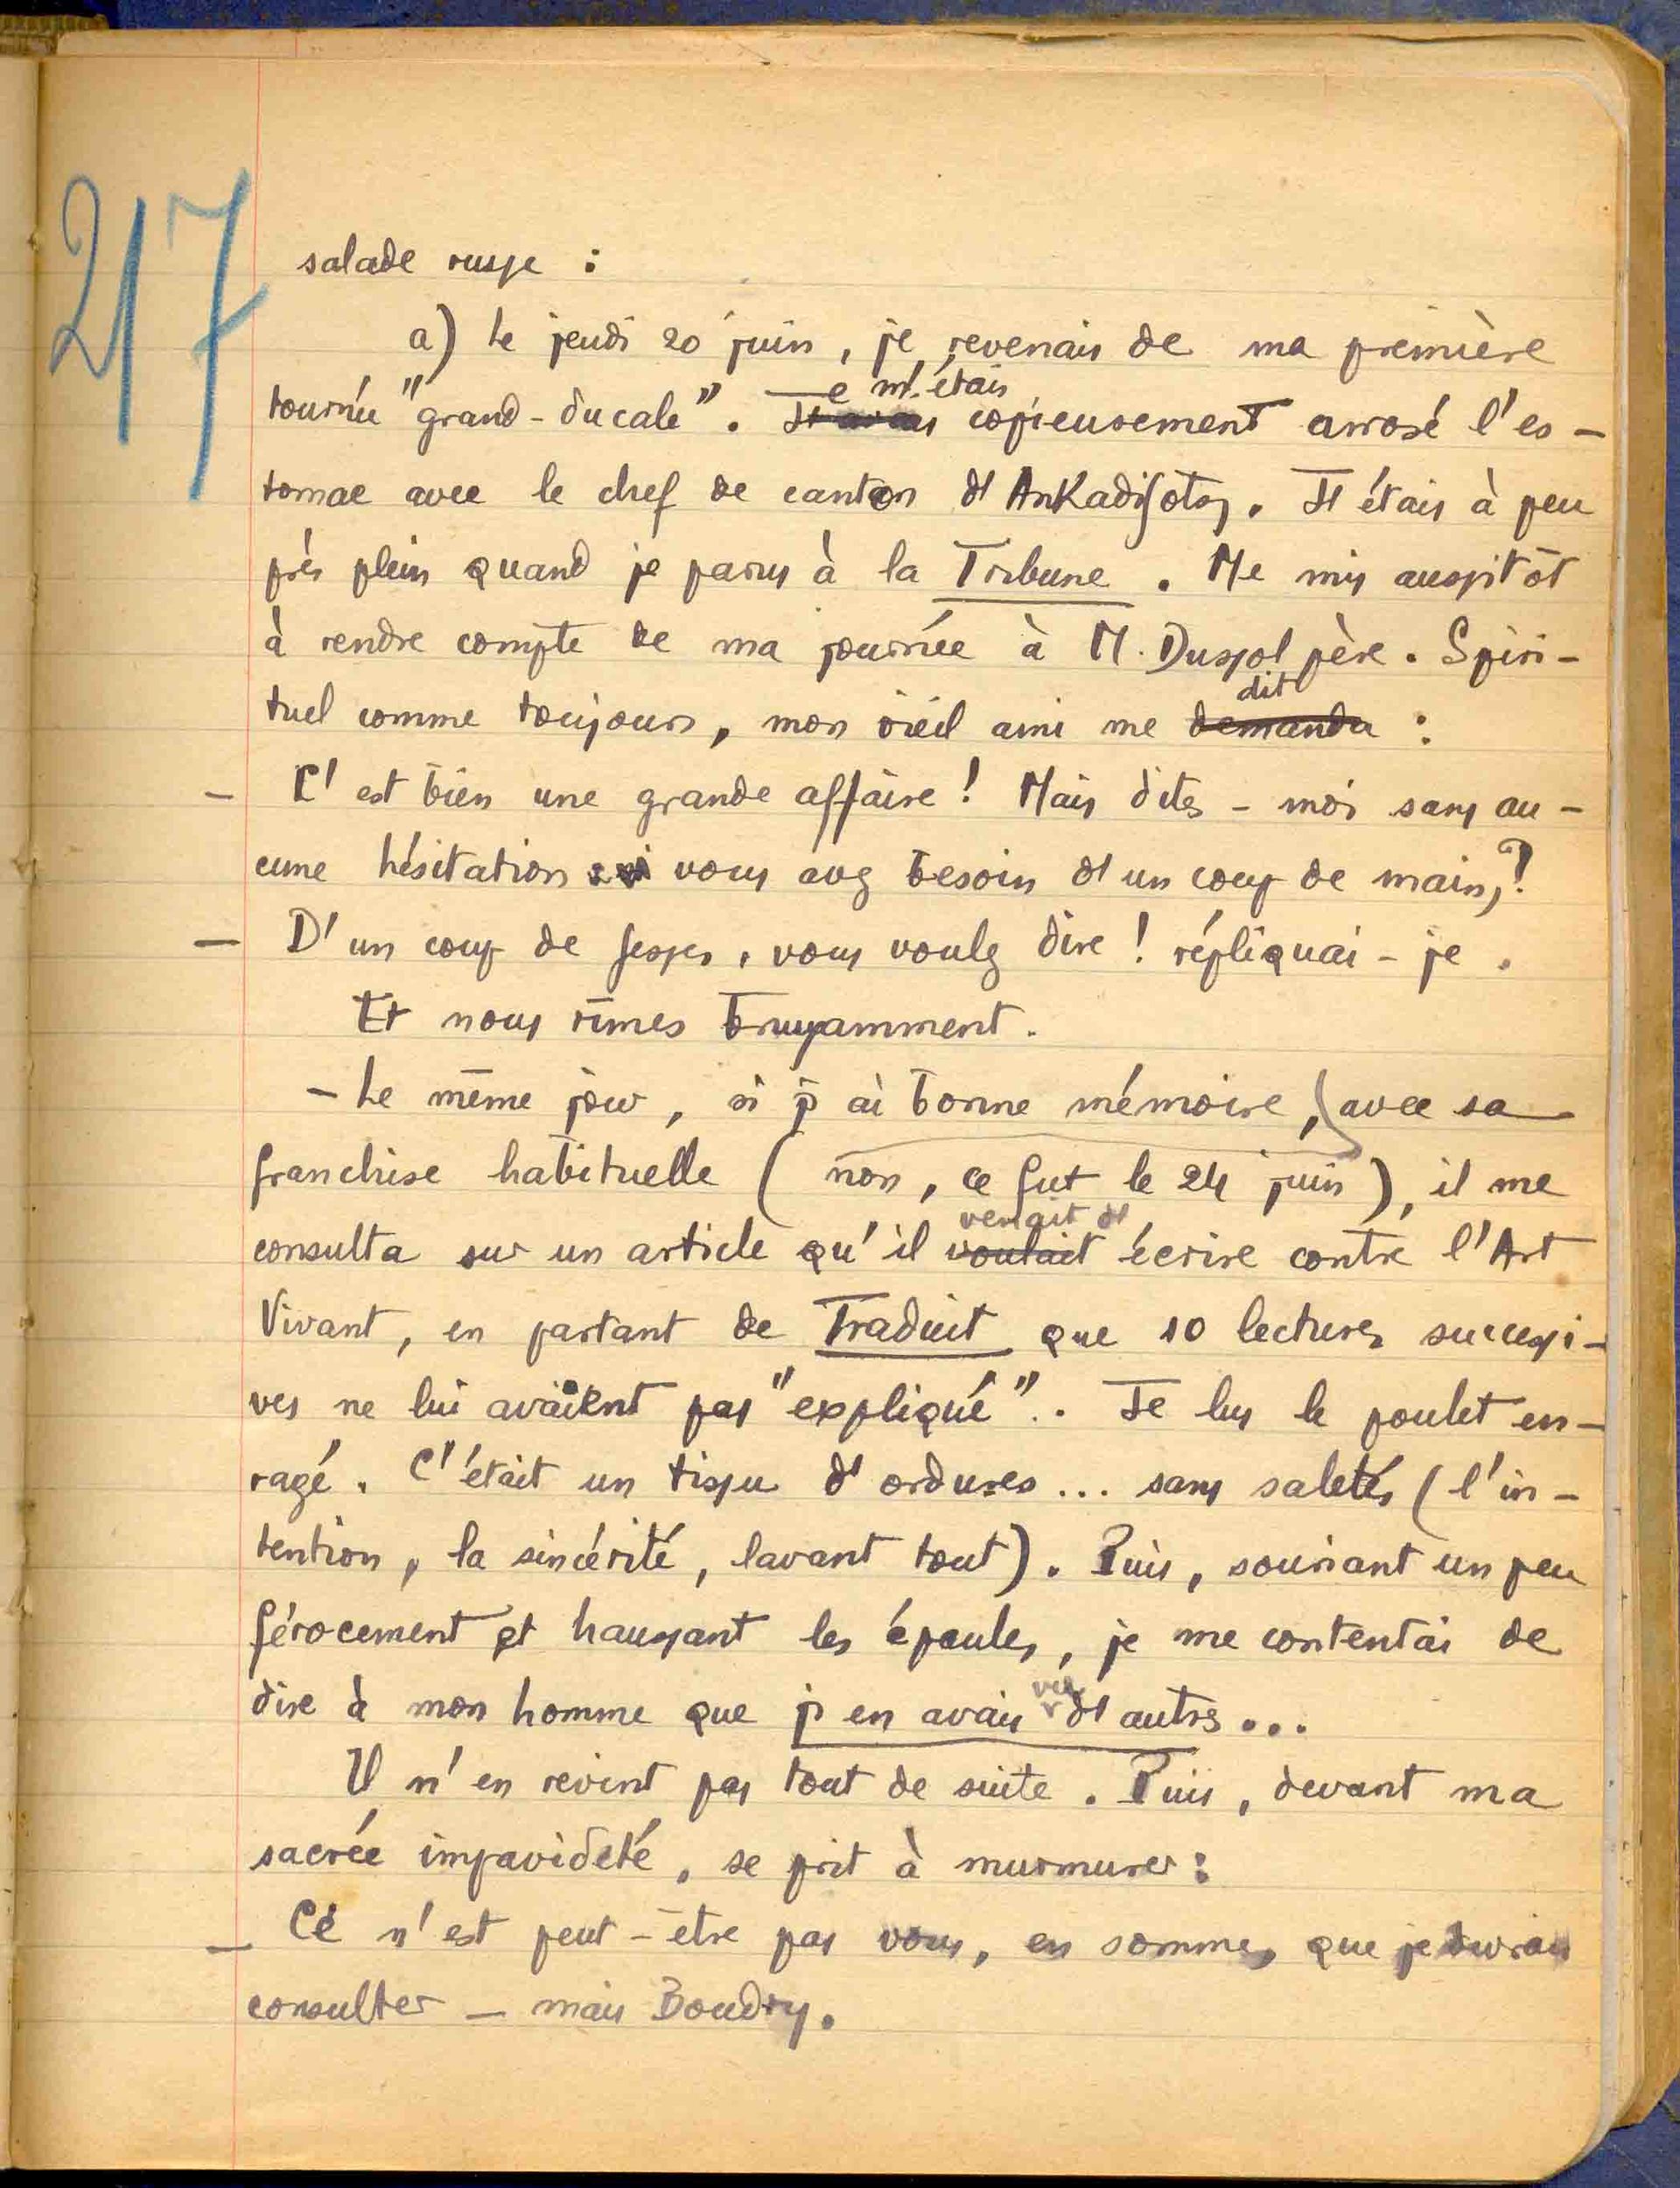 217
salade russe :
a) Le jeudi 20 juin, je revenais de ma première
tournée "grand-ducale". Je m'étais copieusement arrosé l'es-
tomac avec le chef de canton d'Ankadifotsy. J'étais à peu
près plein quand je parus à la Tribune. Me mis aussitôt
à rendre compte de ma journée à M. Dussol père. Spiri-
tuel comme toujours, mon vieil ami me demanda dit :
- C'est bien une grande affaire ! Mais dites-moi sans au-
cune hésitation si vous avez besoin d'un coup de main,?
- D'un coup de fesses, vous voulez dire ! répliquai-je.
Et nous rîmes bruyamment.
- Le même jour, si j'ai bonne mémoire, avec sa
franchise habituelle (non, ce fut le 24 juin), il me
consulta sur un article qu'il voulait venait d'écrire contre l'Art
Vivant, en partant de Traduit que 10 lectures successi-
ves ne lui avaient pas "expliqué".. Je lus le poulet en-
ragé. C'était un tissu d'ordures... sans saletés (l'in-
tention, la sincérité, lavant tout). Puis, souriant un peu
férocement et haussant les épaules, je me contentai de
dire à mon homme que j'en avais vu d'autres...
Il n'en revint pas tout de suite. Puis, devant ma
sacrée impavideté, se prit à murmurer :
- Ce n'est peut-être pas vous, en somme, que je devrais
consulter - mais Boudry.